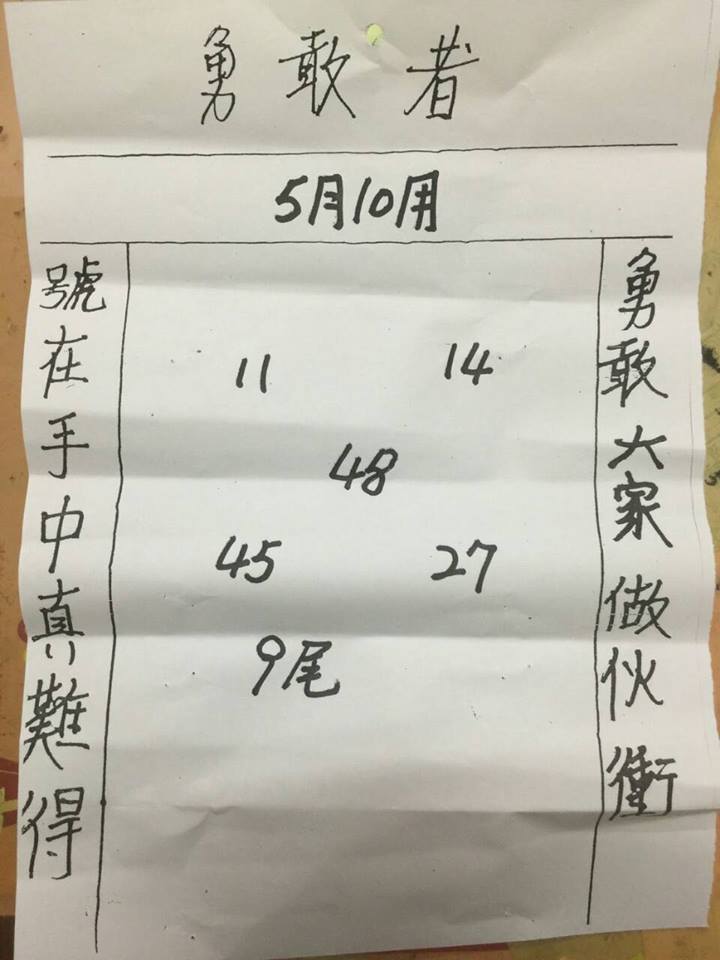 勇敢者
5月10用
勇敢大家做伙衝
11 14
48
45 27
9尾
號在手中真難得